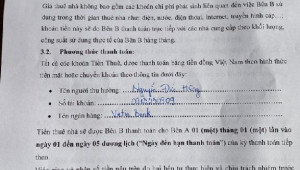 Giá thuê nhà không bao gồm các khoản chi phí phát sinh liên quan đến việc Bên B sử
dụng trong thời gian thuê nhà như: điện, nước, điện thoại, internet, truyền hình cáp...,
khoản tiền này sẽ do Bên B thanh toán trực tiếp với các nhà cung cấp theo khối lượng,
công suất sử dụng thực tế của Bên B hàng tháng.
3.2. Phương thức thanh toán:
Tất cả các khoản Tiền Thuê, được thanh toán bằng tiền đồng Việt Nam theo hình thức
tiền mặt hoặc chuyển khoản theo thông tin dưới đây:
• Tên người thụ hưởng: Nguyễn
• Số tài khoản:
• Tên ngân hàng:
Tiền thuê nhà sẽ được Bên B thanh toán cho Bên A 01 (một) tháng 01 (một) lần vào
ngày 01 đến ngày 05 dương lịch ("Ngày đến hạn thanh toán") của kỳ thanh toán tiếp
theo.